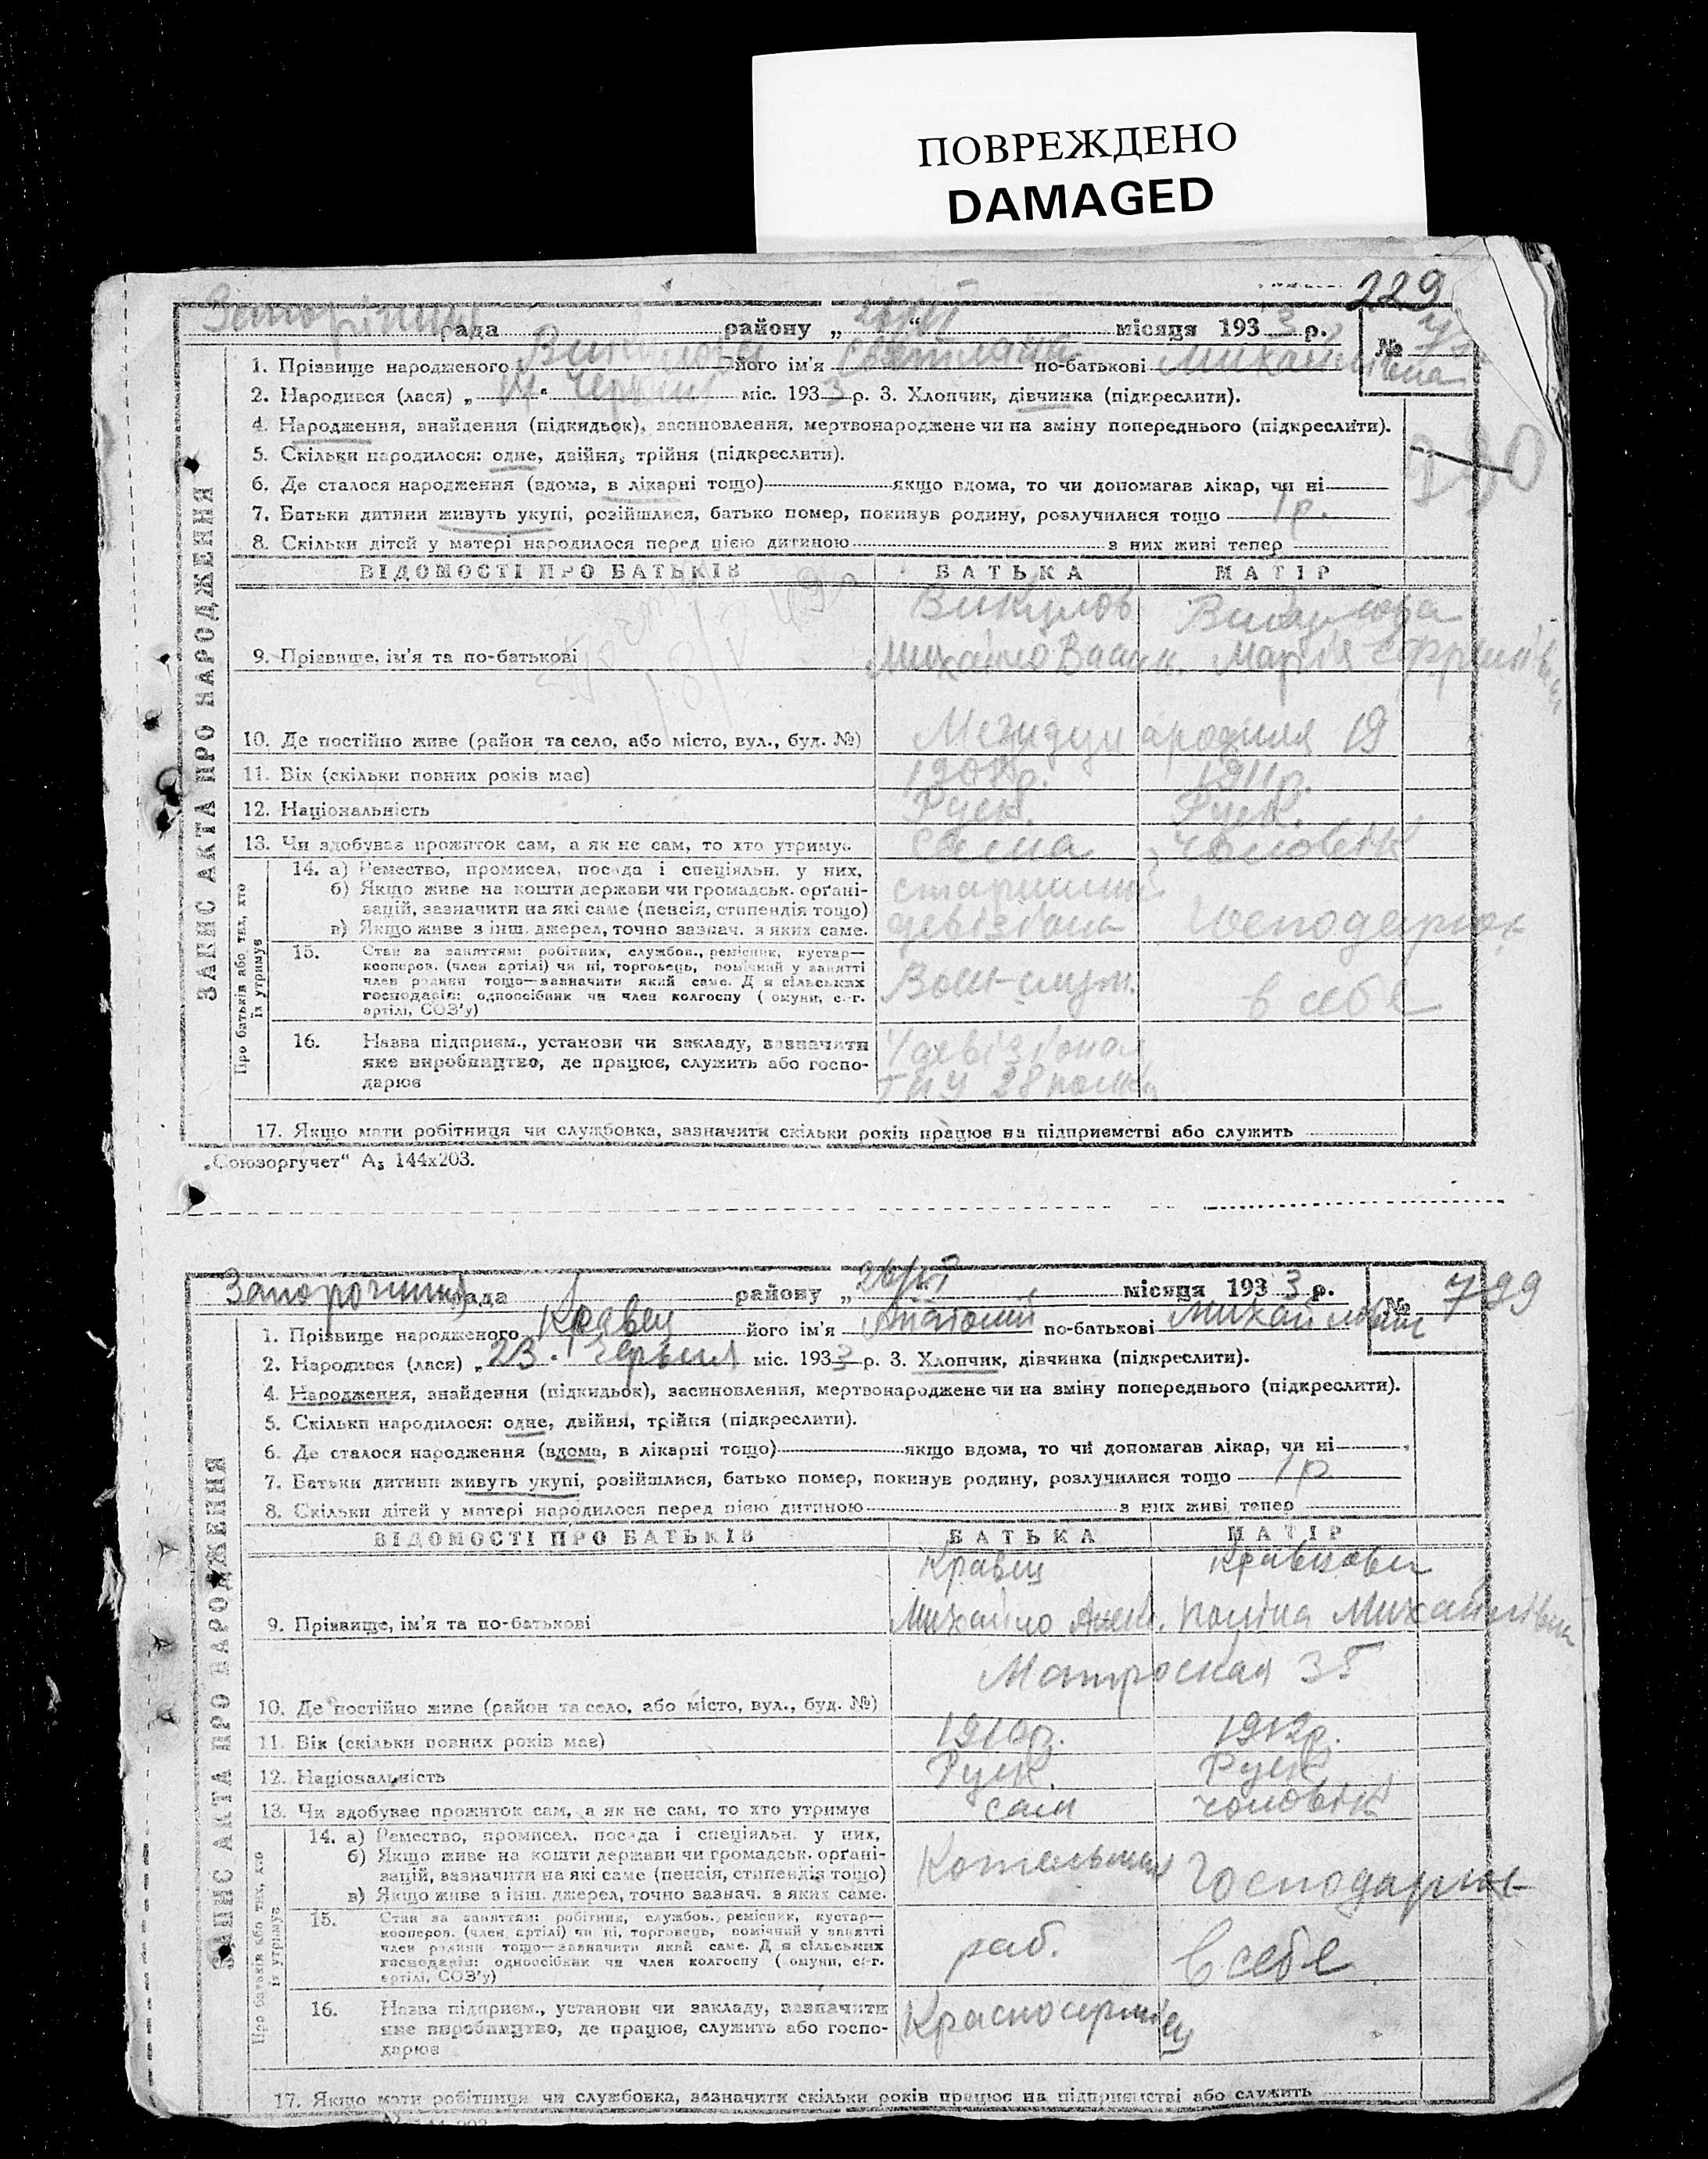 ПОВРЕЖДЕНО
DAMAGED
229
рада району „26/VI“ місяця 1933 р. №
1. Прізвище народженого Викулова його ім'я Світлана по-батькові Михайлівна
2. Народився (лася) „ “ червня міс. 1933 р. 3. Хлопчик, дівчинка (підкреслити).
4. Народження, знайдення (підкидьок), засиновлення, мертвонароджене чи на зміну попереднього (підкреслити).
230
5. Скільки народилося: одне, двійня, трійня (підкреслити).
6. Де сталося народження (вдома, в лікарні тощо) якщо вдома, то чи допомагав лікар, чи ні
7. Батьки дитини живуть укупі, розійшлися, батько помер, покинув родину, розлучилися тощо 1 р.
8. Скільки дітей у матері народилося перед цією дитиною з них живі тепер
ЗАПИС АКТА ПРО НАРОДЖЕННЯ
ВІДОМОСТІ ПРО БАТЬКІВ БАТЬКА МАТІР
Викулов Викулова
9. Прізвище, ім'я та по-батькові Михайло Васил. Марія
10. Де постійно живе (район та село, або місто, вул., буд. №) 19
11. Вік (скільки повних років має) 1911 р.
12. Національність Руск. Руск.
13. Чи здобуває прожиток сам, а як не сам, то хто утримує чоловік
Про батьків або тих, хто їх утримує
14. а) Ремество, промисел, посада і спеціяльн. у них,
б) Якщо живе на кошти держави чи громадськ. орґані-
зацій, зазначити на які саме (пенсія, стипендія тощо)
в) Якщо живе з інш. джерел, точно зазнач. з яких саме.
15. Стан за заняттям: робітник, службов., ремісник, кустар—
кооперов. (член артілі) чи ні, торговець, помічний у занятті
член родини тощо—зазначити який саме. Для сільських
господарів: одноосібник чи член колгоспу (комуни, с.-г.
артілі, СОЗ'у)
в себе
16. Назва підприєм., установи чи закладу, зазначити
яке виробництво, де працює, служить або госпо-
дарює
28 полка
17. Якщо мати робітниця чи службовка, зазначити скільки років працює на підприємстві або служить
„Союзоргучет“ А₅ 144х203.
рада району „26/VI“ місяця 1933 р. № 799
1. Прізвище народженого Кравец його ім'я Анатолій по-батькові Михайлович
2. Народився (лася) „23“ червня міс. 1933 р. 3. Хлопчик, дівчинка (підкреслити).
4. Народження, знайдення (підкидьок), засиновлення, мертвонароджене чи на зміну попереднього (підкреслити).
5. Скільки народилося: одне, двійня, трійня (підкреслити).
6. Де сталося народження (вдома, в лікарні тощо) якщо вдома, то чи допомагав лікар, чи ні
7. Батьки дитини живуть укупі, розійшлися, батько помер, покинув родину, розлучилися тощо 1 р.
8. Скільки дітей у матері народилося перед цією дитиною з них живі тепер
ЗАПИС АКТА ПРО НАРОДЖЕННЯ
ВІДОМОСТІ ПРО БАТЬКІВ БАТЬКА МАТІР
Кравец
9. Прізвище, ім'я та по-батькові Михайло Поліна Михайлівна
Матроская
10. Де постійно живе (район та село, або місто, вул., буд. №)
11. Вік (скільки повних років має) 1910 р. 1912 р.
12. Національність Руск. Руск
13. Чи здобуває прожиток сам, а як не сам, то хто утримує сам чоловік
Про батьків або тих, хто їх утримує
14. а) Ремество, промисел, посада і спеціяльн. у них,
б) Якщо живе на кошти держави чи громадськ. орґані-
зацій, зазначити на які саме (пенсія, стипендія тощо)
в) Якщо живе з інш. джерел, точно зазнач. з яких саме.
Котельщик
15. Стан за заняттям: робітник, службов., ремісник, кустар—
кооперов. (член артілі) чи ні, торговець, помічний у занятті
член родини тощо—зазначити який саме. Для сільських
господарів: одноосібник чи член колгоспу (комуни, с.-г.
артілі, СОЗ'у)
раб. в себе
16. Назва підприєм., установи чи закладу, зазначити
яке виробництво, де працює, служить або госпо-
дарює
17. Якщо мати робітниця чи службовка, зазначити скільки років працює на підприємстві або служить